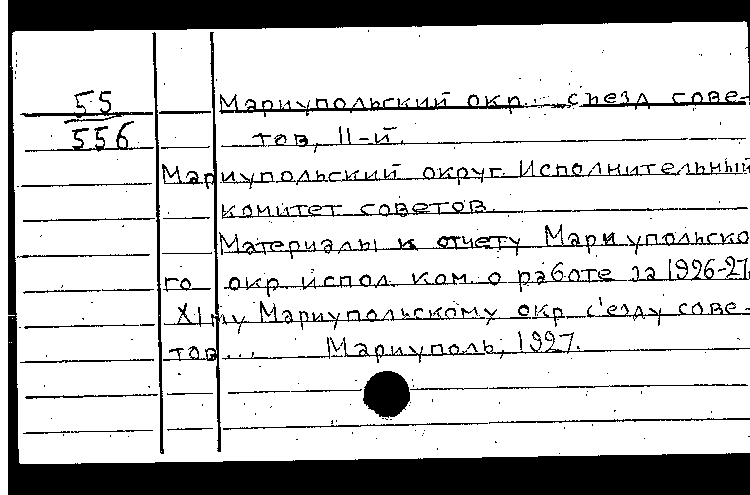 55
556
Мариупольский окр. съезд сове-
тов, II-й.
Мариупольский округ. Исполнительный
комитет советов.
Материалы к отчету Мариупольско
го окр. испол. ком. о работе за 1926-27
XIму Мариупольскому окр. с'езду сове-
тов... Мариуполь, 1927.